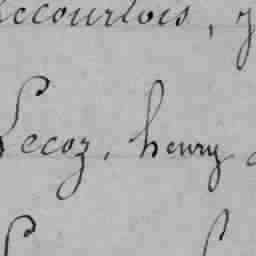 Lecourtois,
Lecoz, henry